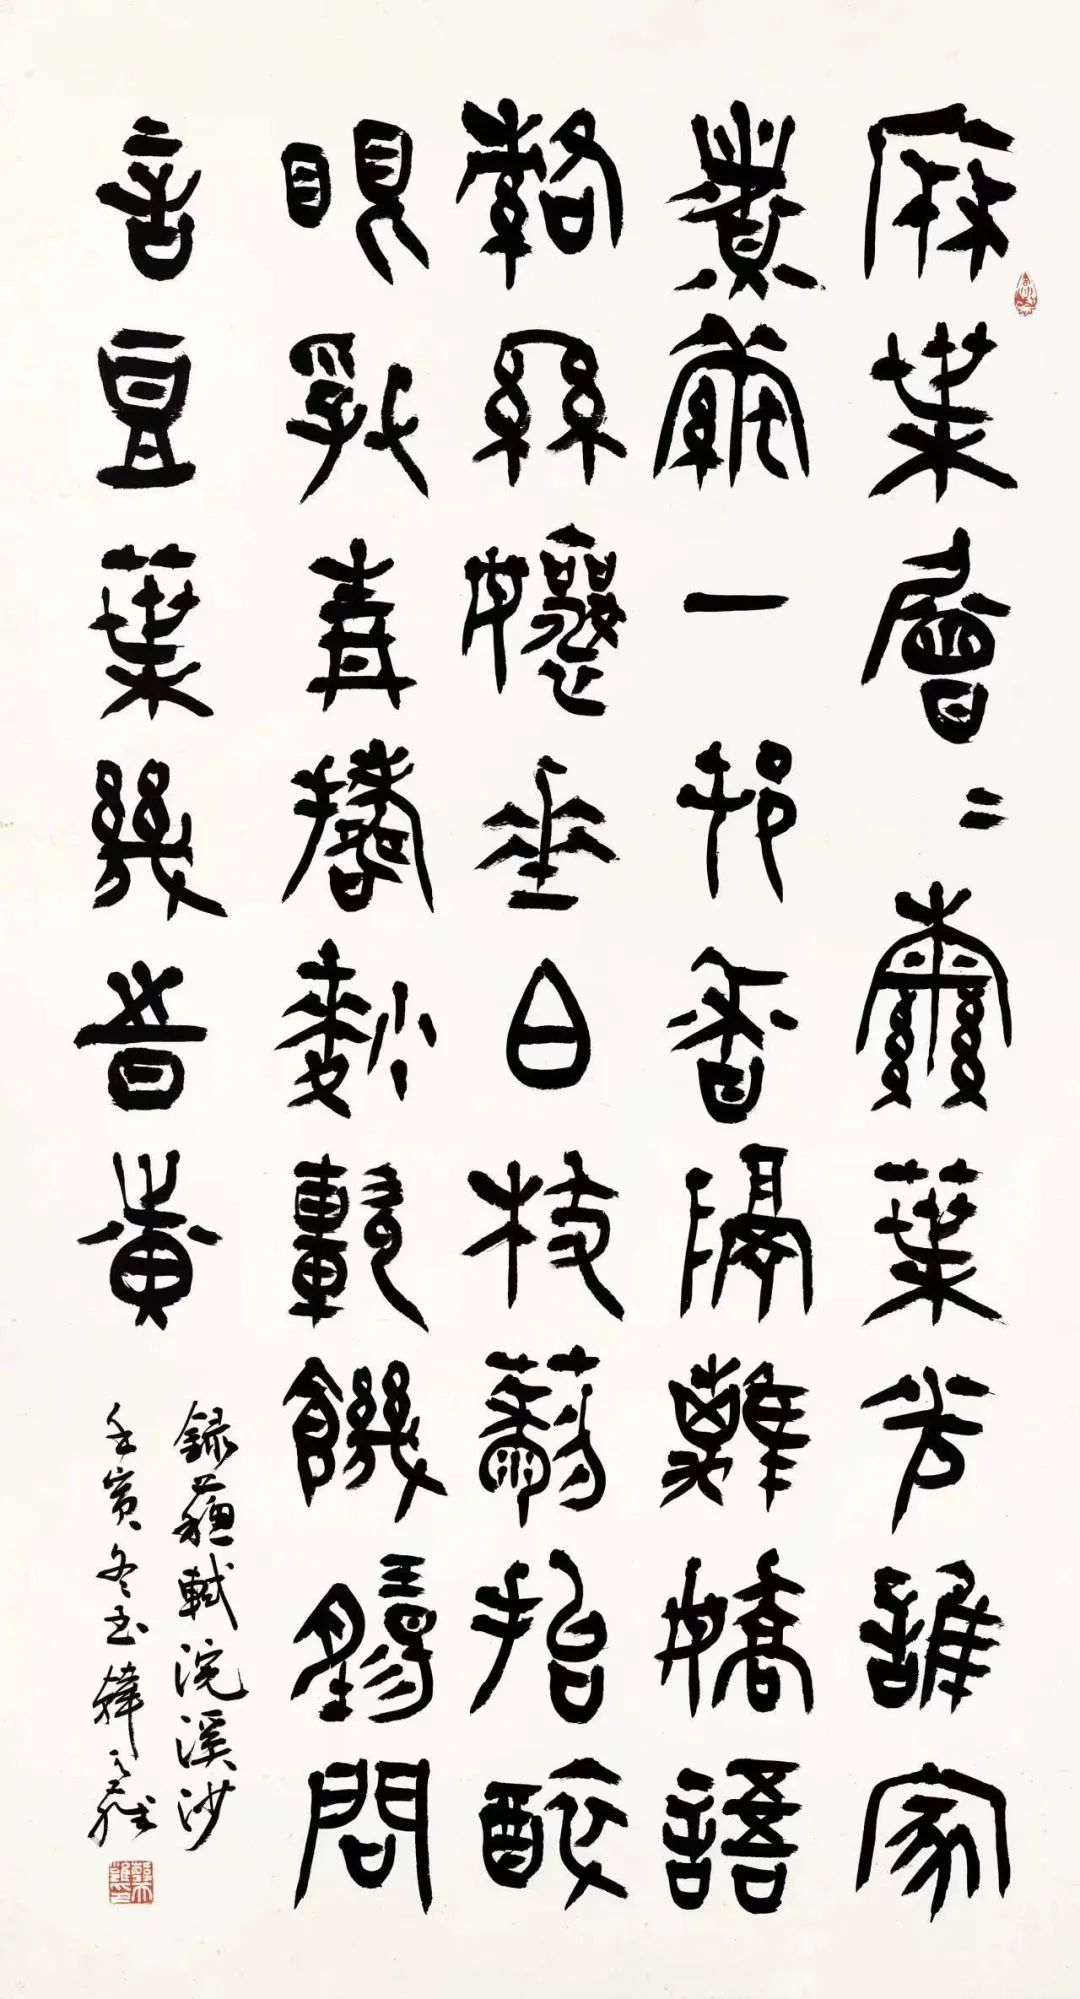 麻葉層〻檾葉光誰家
煮繭一邨香隔籬嬌語
絡絲孃垂白杖藜抬醉
眼捋青搗麨軟饑腸問
言豆葉幾旹黃
録蘇軾浣溪沙
壬寅冬至韓天雍